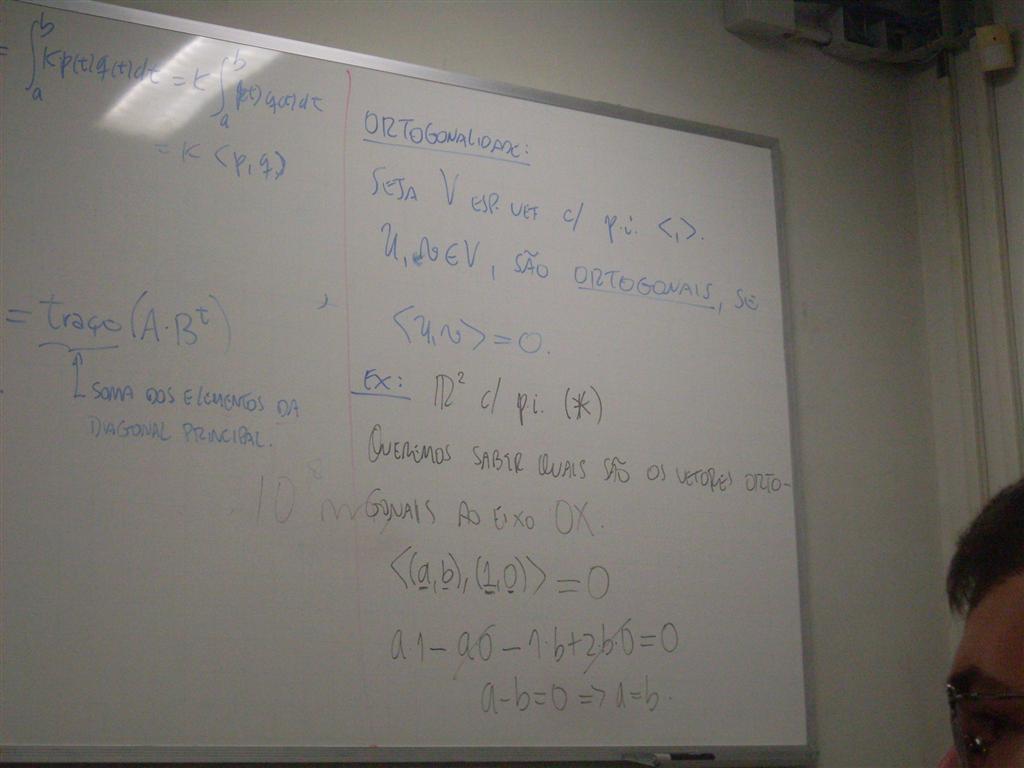 = ∫ₐᵇ K p(t) q(t) dt = K ∫ₐᵇ p(t) q(t) dt
= K <p, q>
= traço (A·Bᵗ)
SOMA DOS ELEMENTOS DA
DIAGONAL PRINCIPAL.
ORTOGONALIDADE:
SEJA V ESP. VET c/ p.i. <,>.
u, v ∈ V, SÃO ORTOGONAIS, SE
<u, v> = 0.
EX: ℝ² c/ p.i. (*)
QUEREMOS SABER QUAIS SÃO OS VETORES ORTO-
GONAIS AO EIXO OX.
<(a,b),(1,0)> = 0
a·1 - a·0 - 1·b + 2b·0 = 0
a-b=0 => a=b.